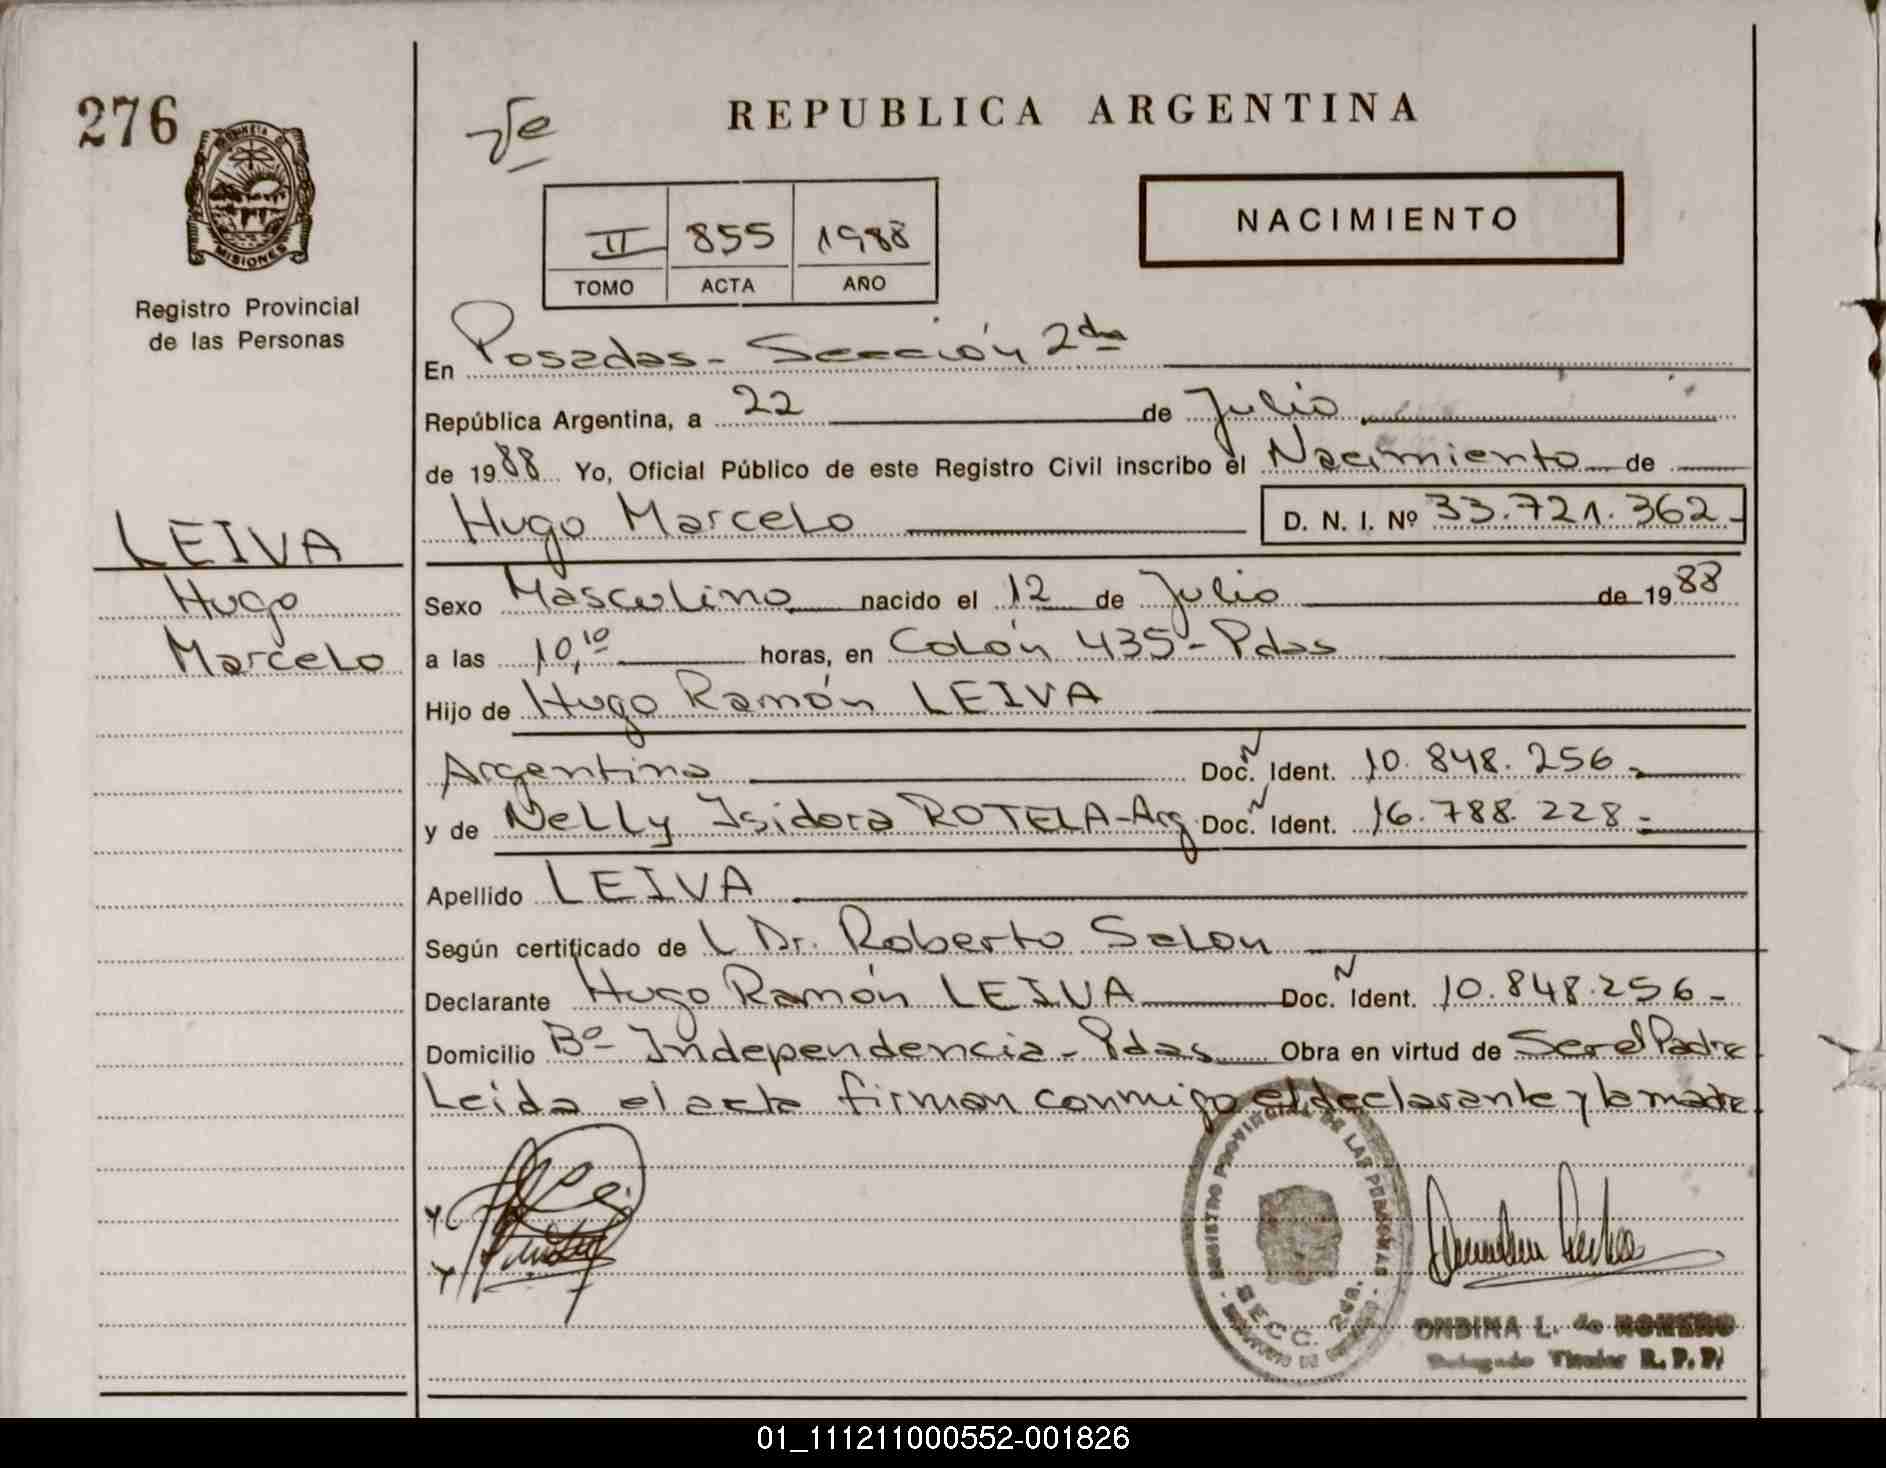 276
MISIONES
Registro Provincial
de las Personas
LEIVA
Hugo
Marcelo
REPUBLICA ARGENTINA
NACIMIENTO
II 855 1988
TOMO ACTA AÑO
En Posadas - Sección 2da
República Argentina, a 22 de Julio
de 1988 Yo, Oficial Público de este Registro Civil inscribo el Nacimiento de
Hugo Marcelo D. N. I. Nº 33.721.362-
Sexo Masculino nacido el 12 de Julio de 1988
a las 10,10 horas, en Colón 435 - Pdas
Hijo de Hugo Ramón LEIVA
Argentino Doc. N Ident. 10.848.256-
y de Nelly Isidora ROTELA-Arg Doc. N Ident. 16.788.228-
Apellido LEIVA
Según certificado de L Dr. Roberto Salon
Declarante Hugo Ramón LEIVA Doc. N Ident. 10.848.256-
Domicilio Bº Independencia - Pdas Obra en virtud de Ser el Padre
Leida el acta firman conmigo el declarante y la madre
REGISTRO PROVINCIAL DE LAS PERSONAS
SECC. 2da.
ONDINA L. de ROMERO
Delegado Titular R. P. P.
01_111211000552-001826